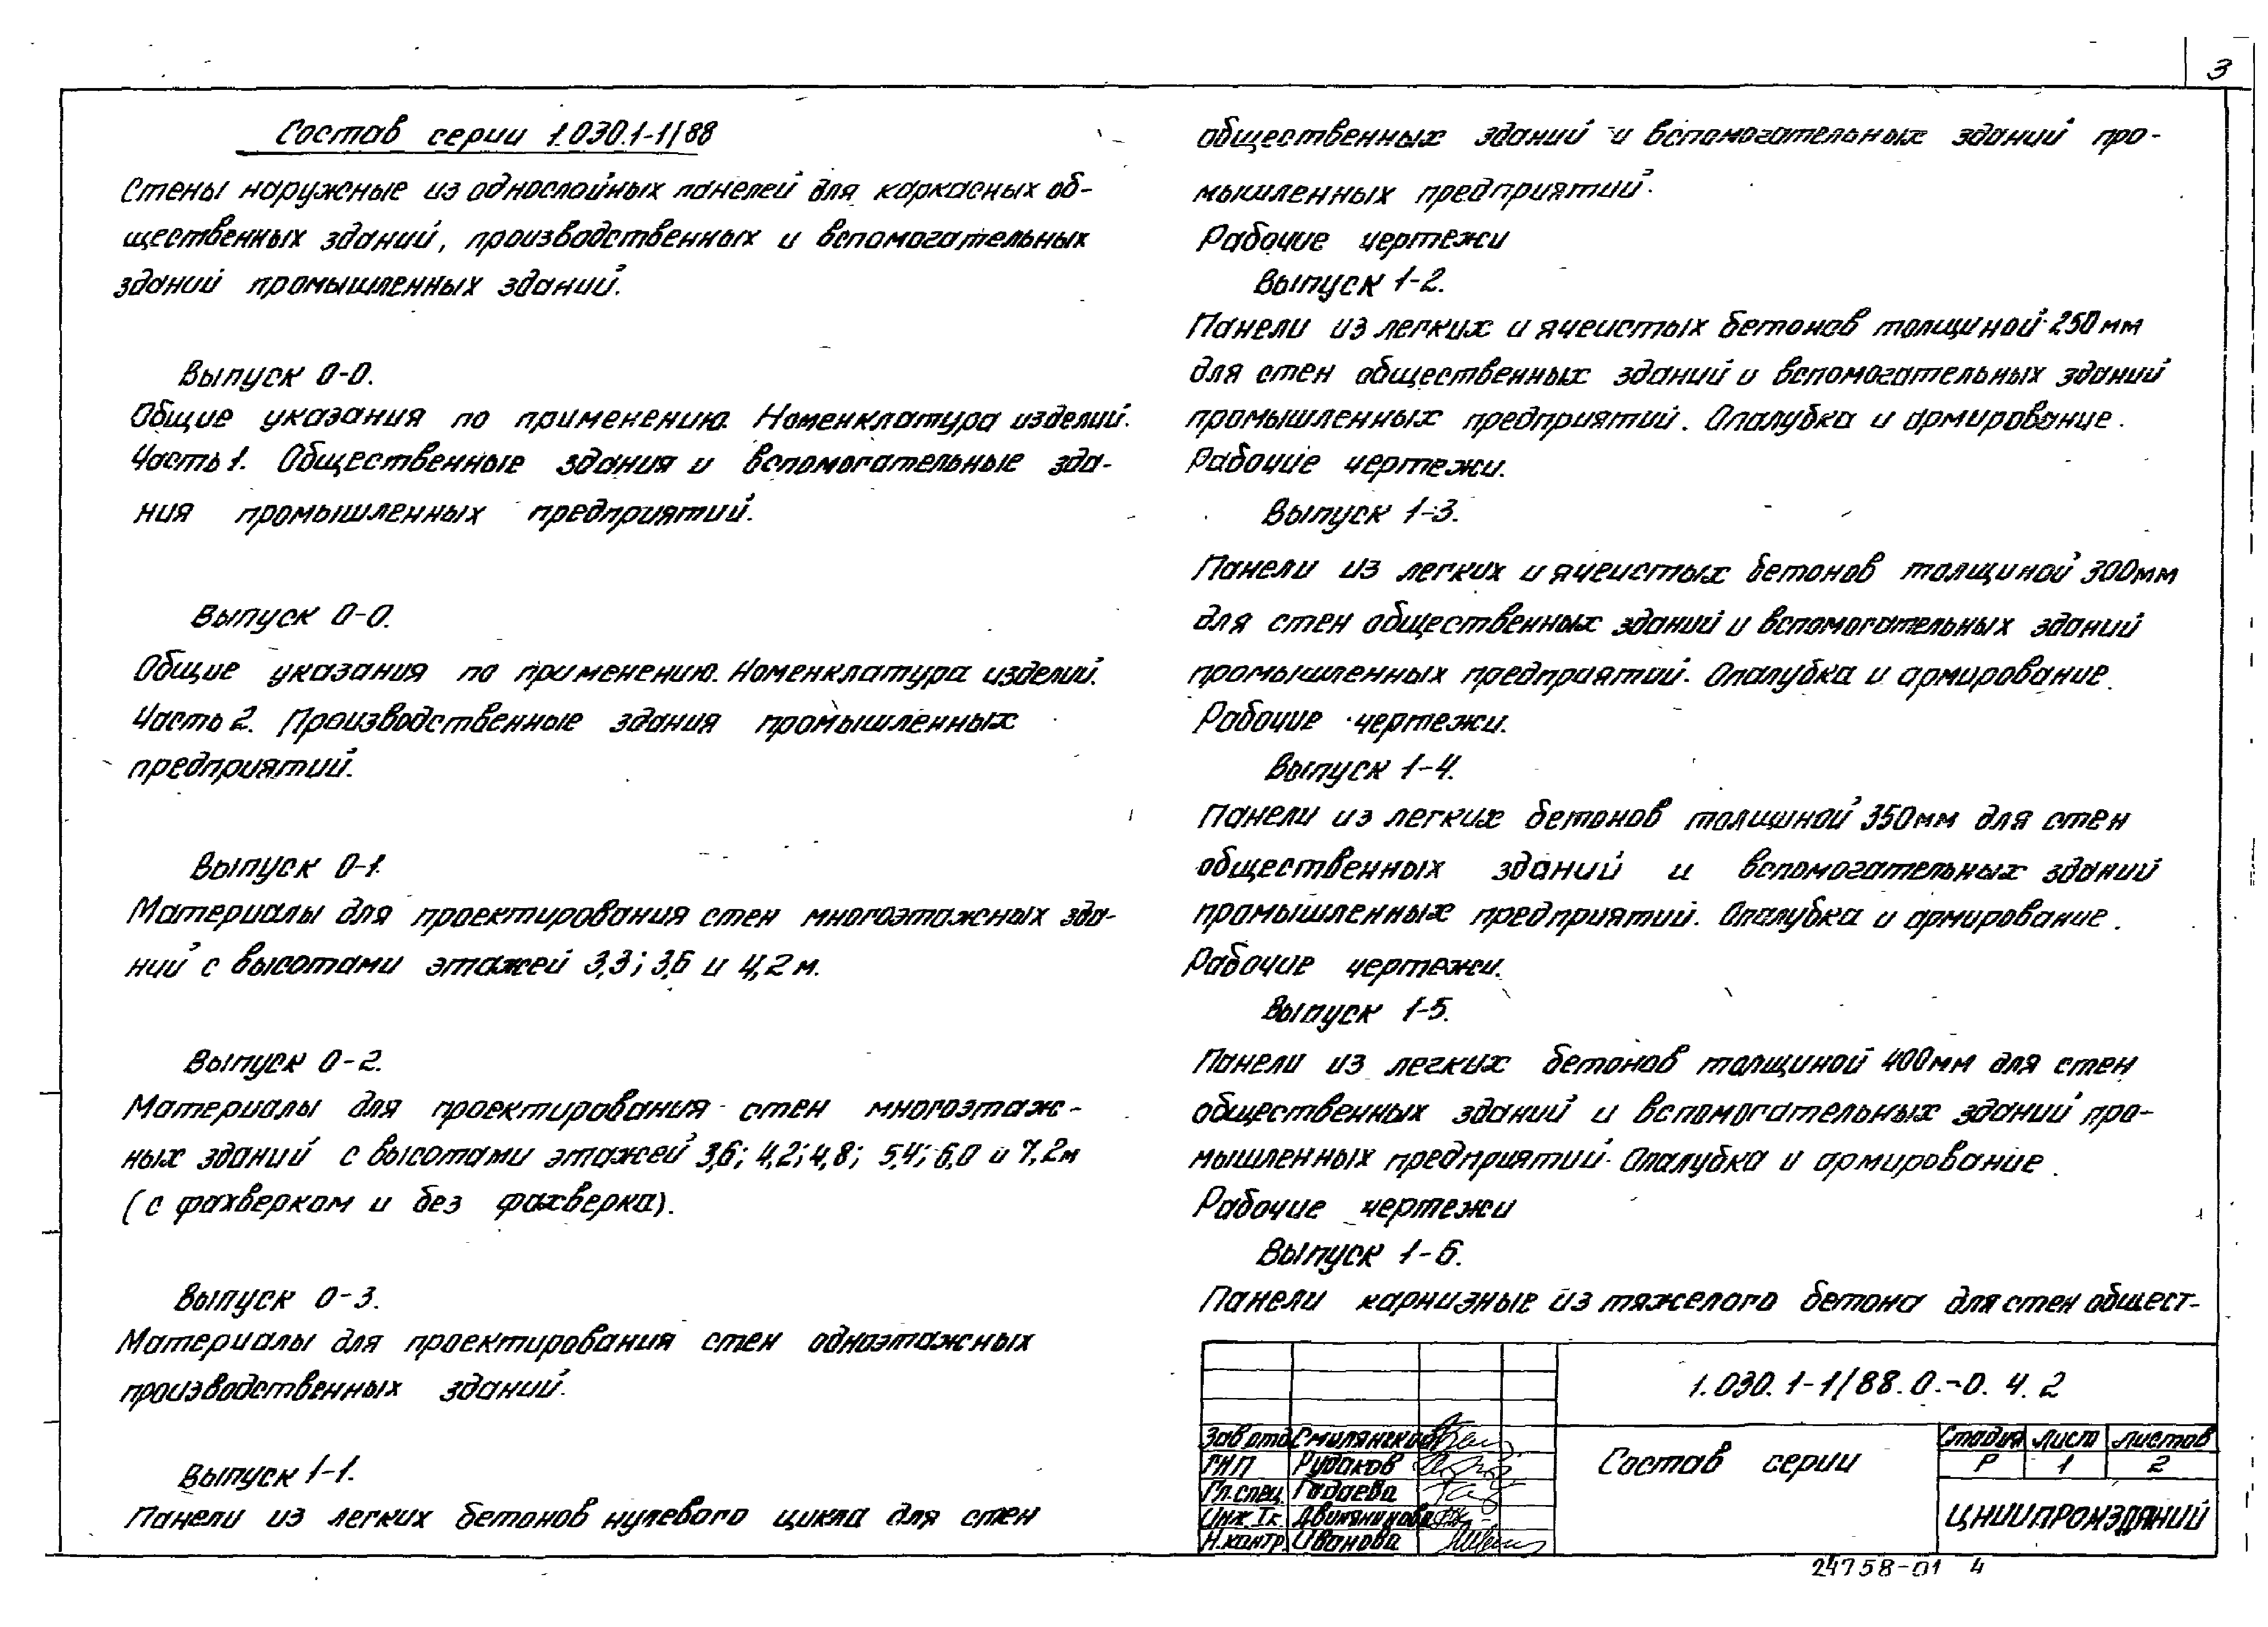 3
Состав серии 1.030.1-1/88
Стены наружные из однослойных панелей для каркасных об-
щественных зданий, производственных и вспомогательных
зданий промышленных зданий.
Выпуск 0-0.
Общие указания по применению. Номенклатура изделий.
Часть 1. Общественные здания и вспомогательные зда-
ния промышленных предприятий.
Выпуск 0-0.
Общие указания по применению. Номенклатура изделий.
Часть 2. Производственные здания промышленных
предприятий.
Выпуск 0-1.
Материалы для проектирования стен многоэтажных зда-
ний с высотами этажей 3,3; 3,6 и 4,2 м.
Выпуск 0-2.
Материалы для проектирования стен многоэтаж-
ных зданий с высотами этажей 3,6; 4,2; 4,8; 5,4; 6,0 и 7,2м
(с фахверком и без фахверка).
Выпуск 0-3.
Материалы для проектирования стен одноэтажных
производственных зданий.
Выпуск 1-1.
Панели из легких бетонов нулевого цикла для стен
общественных зданий и вспомогательных зданий про-
мышленных предприятий.
Рабочие чертежи
Выпуск 1-2.
Панели из легких и ячеистых бетонов толщиной 250 мм
для стен общественных зданий и вспомогательных зданий
промышленных предприятий. Опалубка и армирование.
Рабочие чертежи.
Выпуск 1-3.
Панели из легких и ячеистых бетонов толщиной 300мм
для стен общественных зданий и вспомогательных зданий
промышленных предприятий. Опалубка и армирование.
Рабочие чертежи.
Выпуск 1-4.
Панели из легких бетонов толщиной 350мм для стен
общественных зданий и вспомогательных зданий
промышленных предприятий. Опалубка и армирование.
Рабочие чертежи.
Выпуск 1-5.
Панели из легких бетонов толщиной 400мм для стен
общественных зданий и вспомогательных зданий про-
мышленных предприятий. Опалубка и армирование.
Рабочие чертежи
Выпуск 1-6.
Панели карнизные из тяжелого бетона для стен общест-
1.030.1-1/88.0.-0.Ч.2
Зав отд Смилянский
ГИП Рудаков
Гл.спец. Гадаева
Инж.Iк.
Н.контр. Иванова
Состав серии
Стадия Лист Листов
Р 1 2
ЦНИИПРОМЗДАНИЙ
24758-01 4